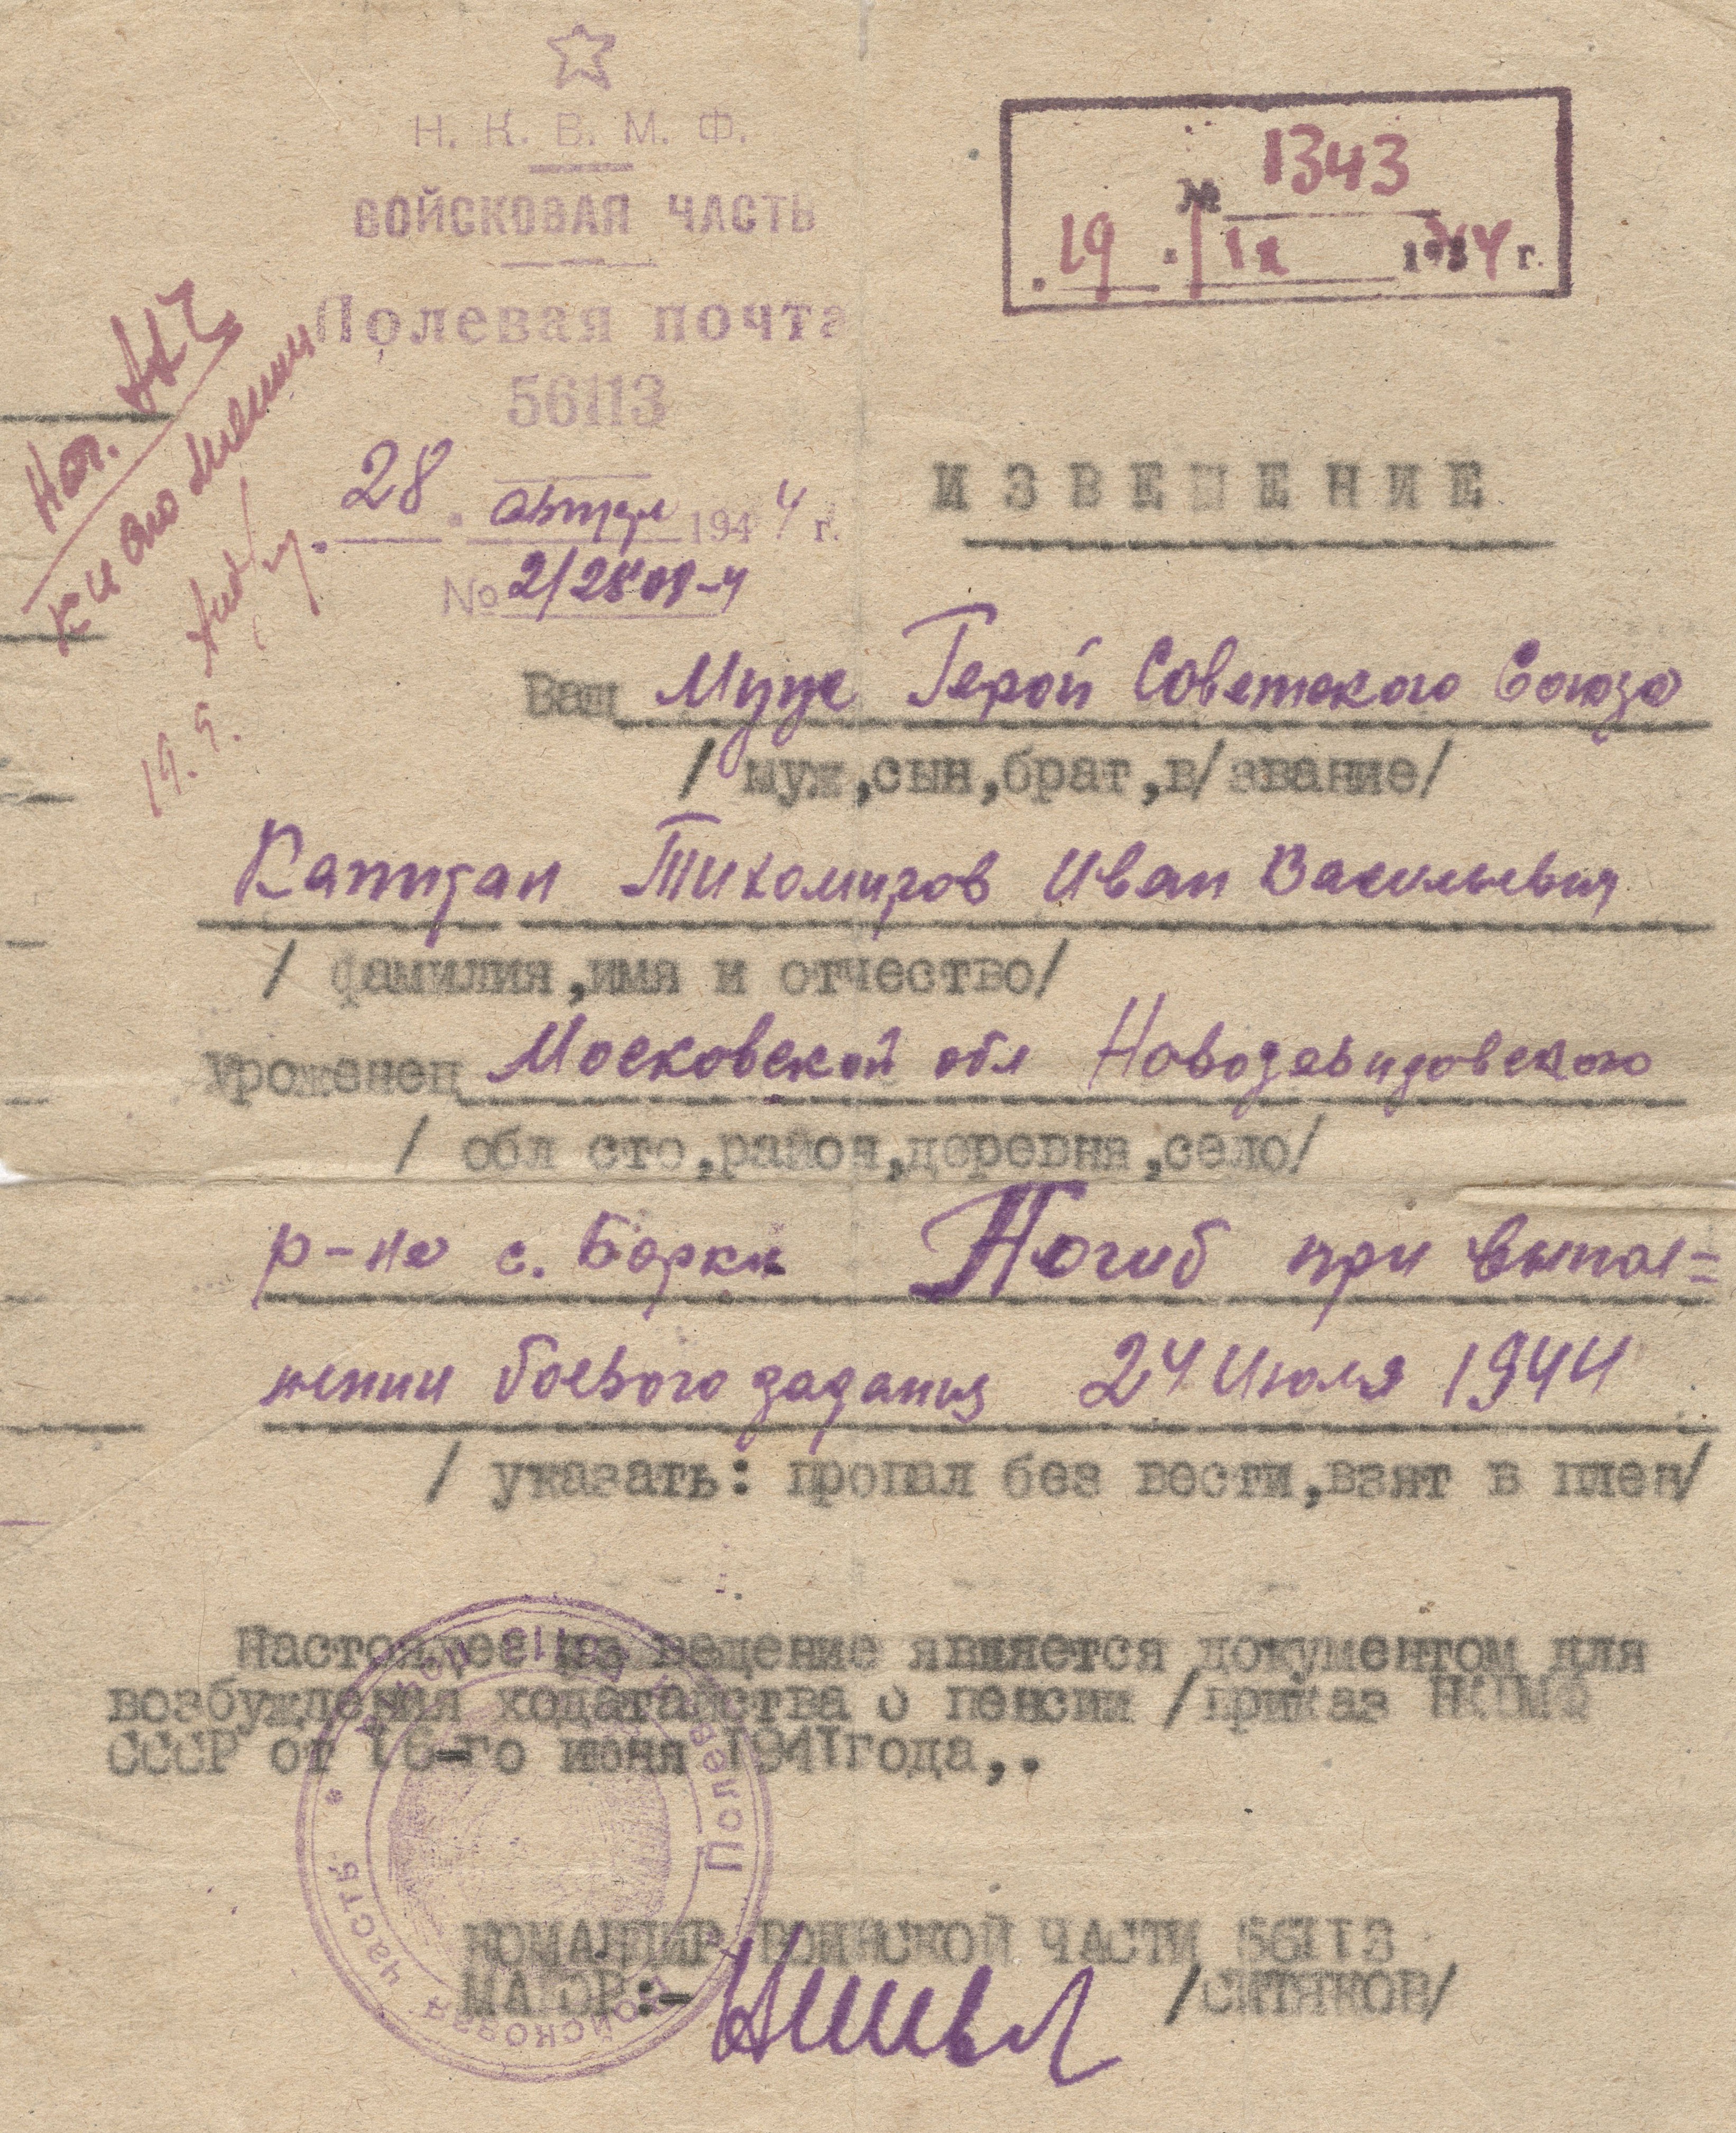 Н. К. В. М. Ф.
ВОЙСКОВАЯ ЧАСТЬ
Полевая почта
56113
28. август 1944 г.
№ 2/2809-ч
№ 1343
19. IX 1944 г.
Нач.
к исполнению
19.9.
ИЗВЕЩЕНИЕ
Ваш Муж Герой Советского Союза
/ муж,сын,брат,в/звание/
Капитан Тихомиров Иван Васильевич
/ фамилия,имя и отчество/
Уроженец Московской обл Новозавидовского
/ обл сто,район,деревня,село/
р-на с. Борки Погиб при выпол=
нении боевого задания 24 Июля 1944
/ указать: пропал без вести,взят в плен/
Настоящее из вещение является документом для
возбуждения ходатайства о пенсии /приказ НКВМФ
СССР от 16-го июня 1941года,.
КОМАНДИР ВОИНСКОЙ ЧАСТИ 56113
МАЙОР:- /СИТЯКОВ/
Войсковая часть • Полевая почта 56113